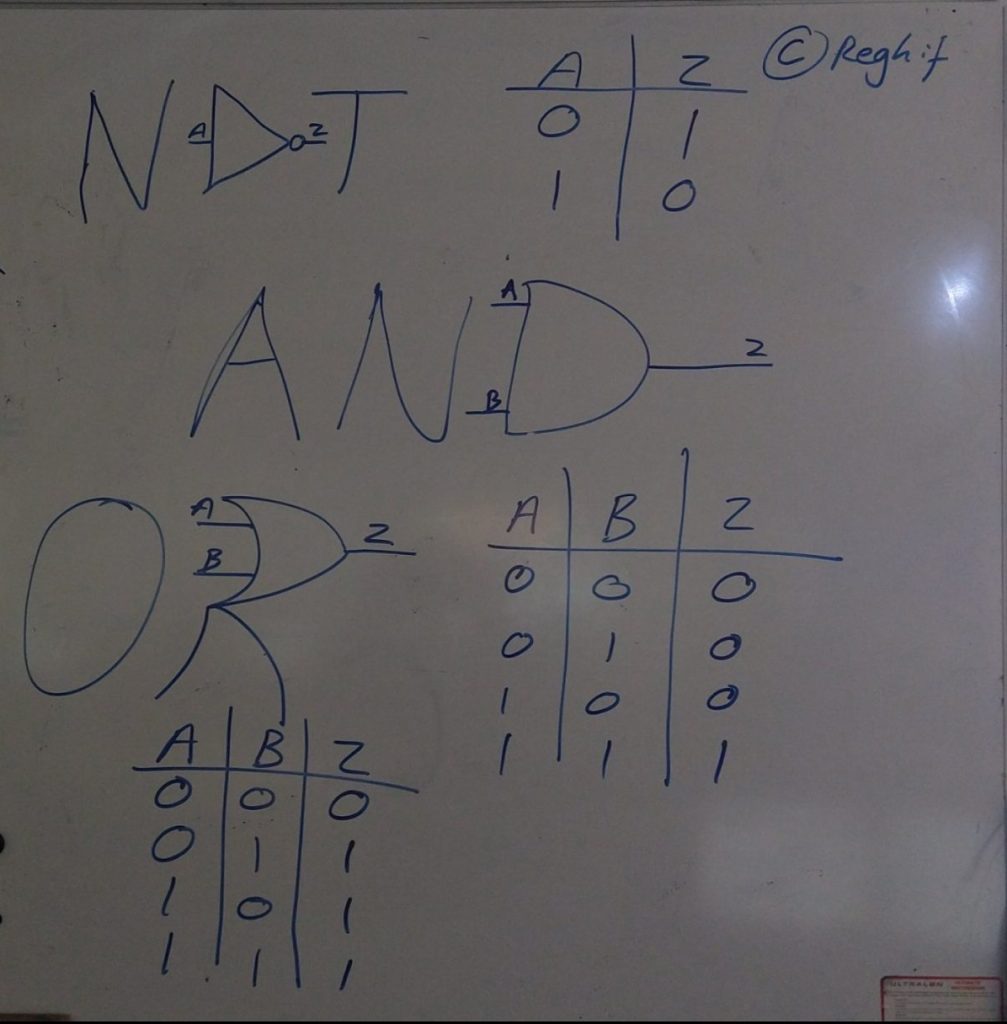 NOT
A Z
A Z
0 1
1 0
© Reghif
AND
A
B
Z
OR
A
B
Z
A B Z
0 0 0
0 1 0
1 0 0
1 1 1
A B Z
0 0 0
0 1 1
1 0 1
1 1 1
ULTRALON